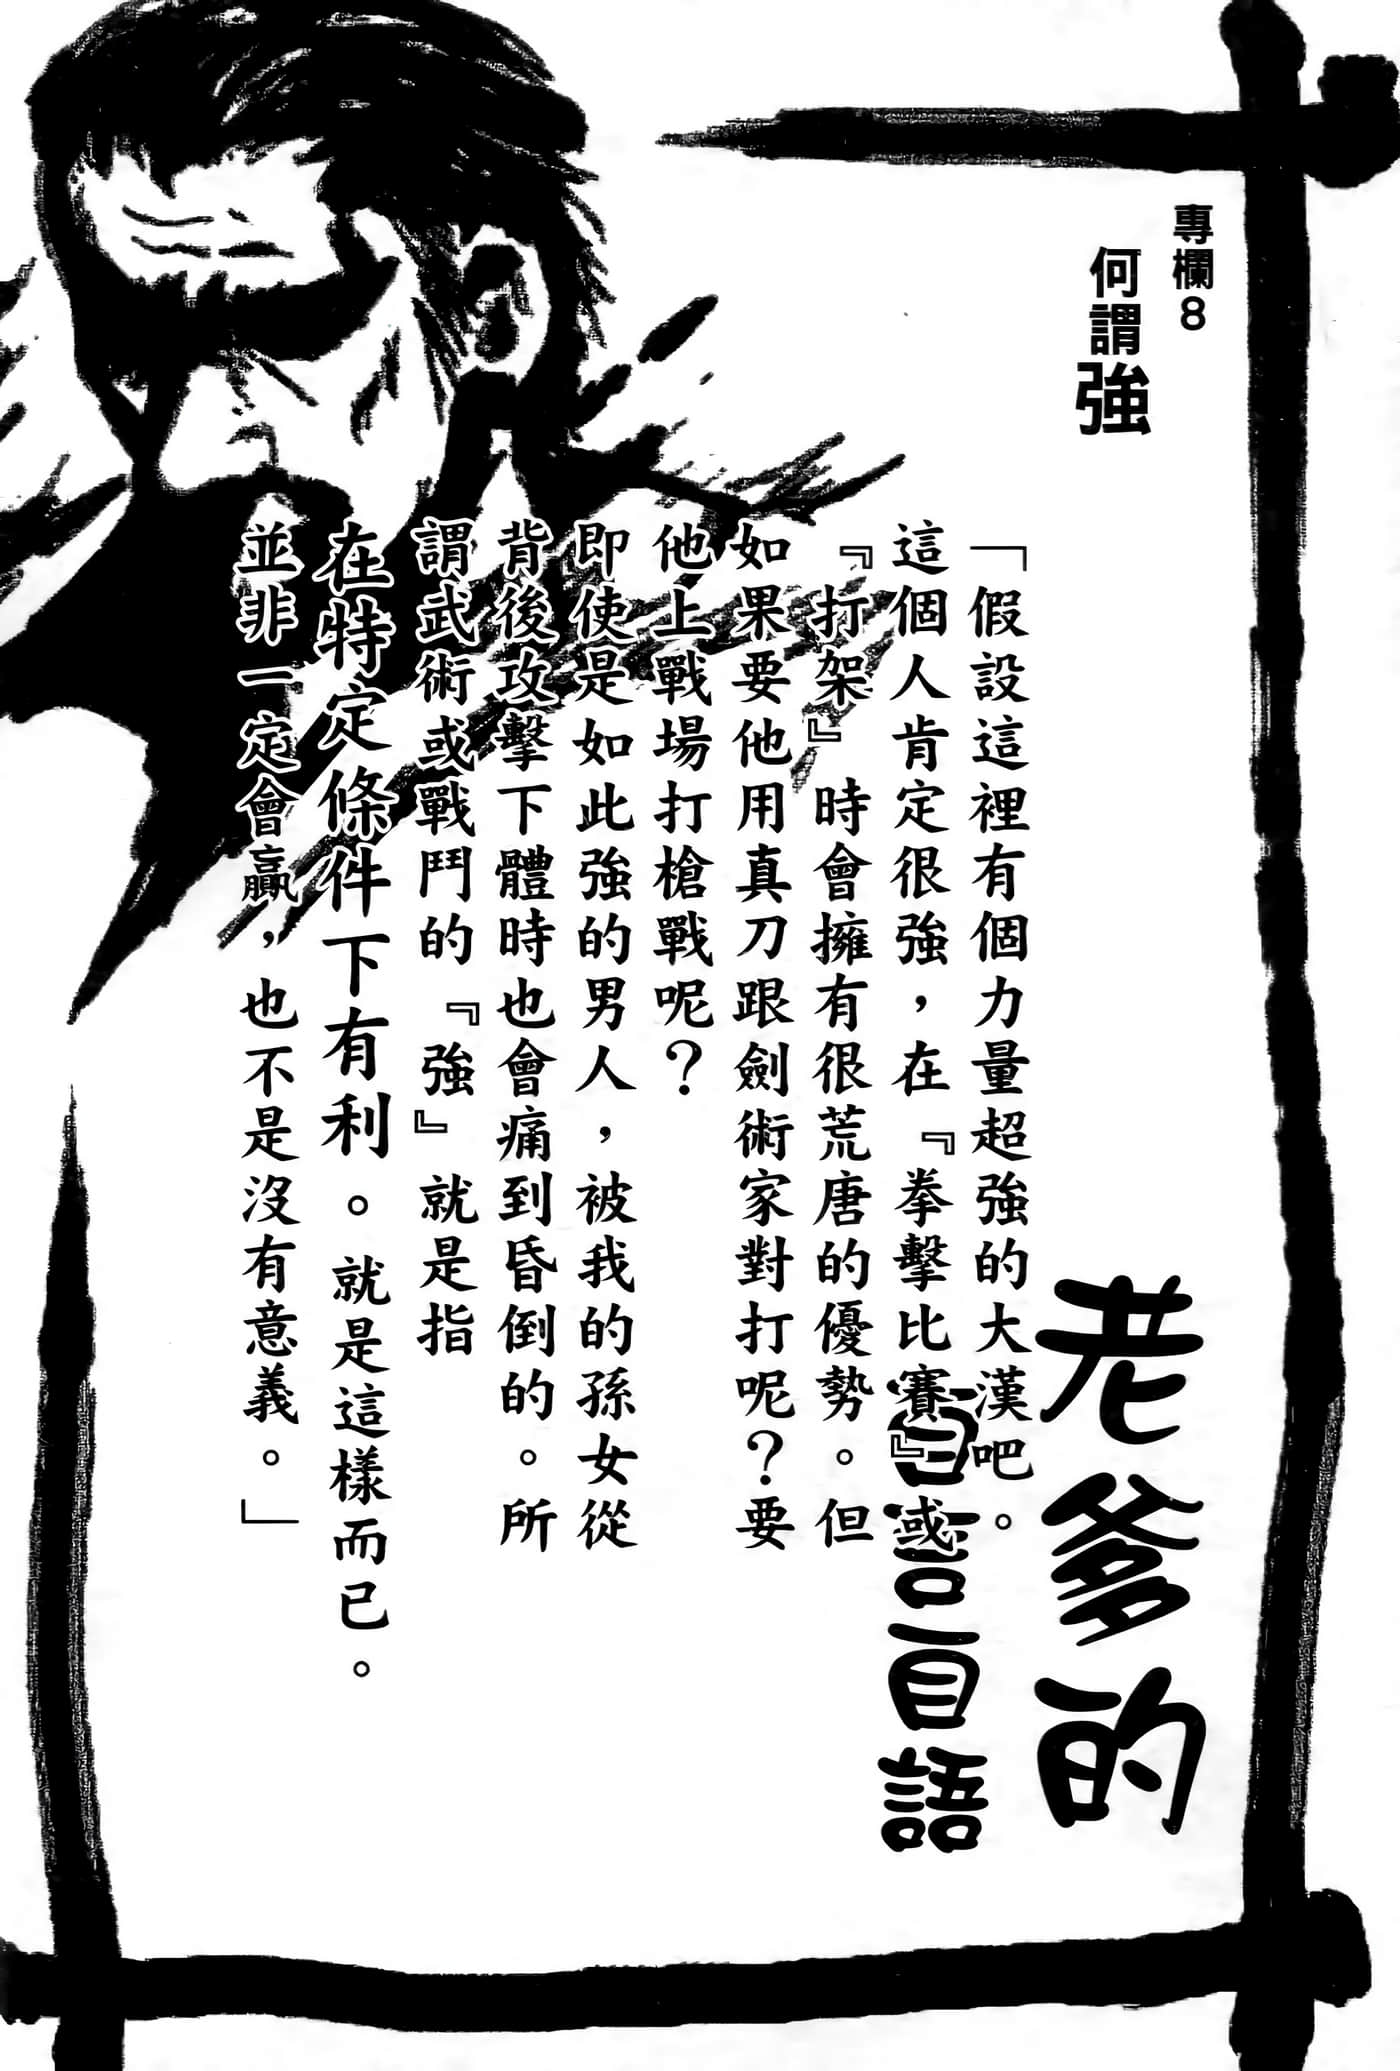 專欄8
何謂強
老爹的
自言自語
「假設這裡有個力量超強的大漢吧。
這個人肯定很強，在『拳擊比賽』或
『打架』時會擁有很荒唐的優勢。但
如果要他用真刀跟劍術家對打呢？要
他上戰場打槍戰呢？
即使是如此強的男人，被我的孫女從
背後攻擊下體時也會痛到昏倒的。所
謂武術或戰鬥的『強』就是指
在特定條件下有利。就是這樣而已。
並非一定會贏，也不是沒有意義。」